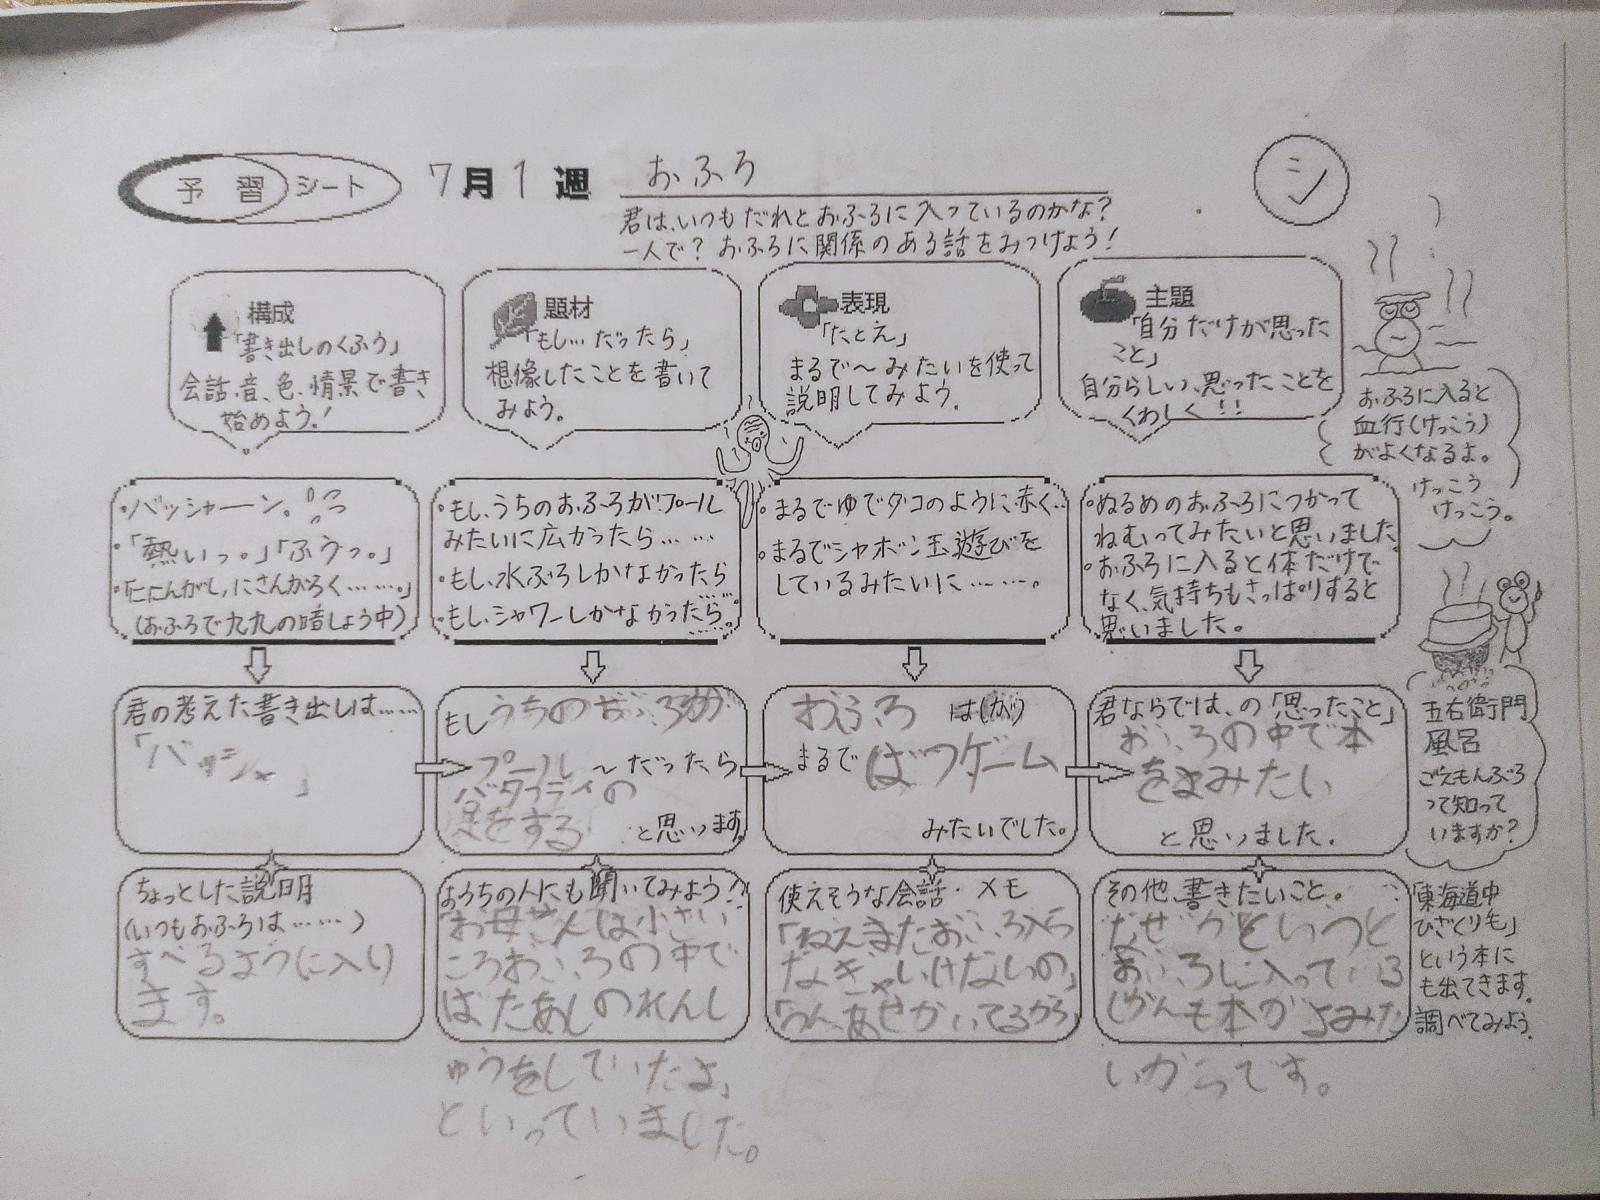 予習シート 7月1週 おふろ
シ
君は、いつもだれとおふろに入っているのかな?
一人で?おふろに関係のある話をみつけよう!
構成
「書き出しのくふう」
会話、音、色、情景で書き
始めよう!
題材
「もし…だったら」
想像したことを書いて
みよう。
表現
「たとえ」
まるで〜みたいを使って
説明してみよう。
主題
「自分だけが思った
こと」
自分らしい、思ったことを
くわしく!!
おふろに入ると
血行(けっこう)
がよくなるよ。
けっこう
けっこう。
・バッシャーン。
・「熱いっ。」「ふうっ。」
・「ににんがし、にさんがろく……。」
(おふろで九九の暗しょう中)
・もし、うちのおふろがプール
みたいに広かったら……
・もし、水ぶろしかなかったら
・もし、シャワーしかなかったら…。
・まるでゆでダコのように赤く…
・まるでシャボン玉遊びを
しているみたいに……。
・ぬるめのおふろにつかって
ねむってみたいと思いました。
・おふろに入ると体だけで
なく、気持ちもさっぱりすると
思いました。
君の考えた書き出しは……
もしうちのおふろが
プール 〜だったら
バタフライの
をする と思います。
おふろ は(が)
まるで ばつゲーム
みたいでした。
君ならでは、の「思ったこと」
おふろの中で本
をよみたい
と思いました。
五右衛門
風呂
ごえもんぶろ
って知って
いますか?
ちょっとした説明
(いつもおふろは……)
すべるように入り
ます。
おうちの人にも聞いてみよう!!
「お母さんは小さい
ころおふろの中で
ばたあしのれんし
ゅうをしていたよ」
といっていました。
使えそうな会話・メモ
「ねえまたおふろ入ら
なぎゃいけないの」
「うん、あせかいてるから」
その他、書きたいこと。
なぜかというと
おふろに入っている
じかんも本がよみた
いからです。
「東海道中
ひざくりも」
という本に
も出てきます。
調べてみよう。